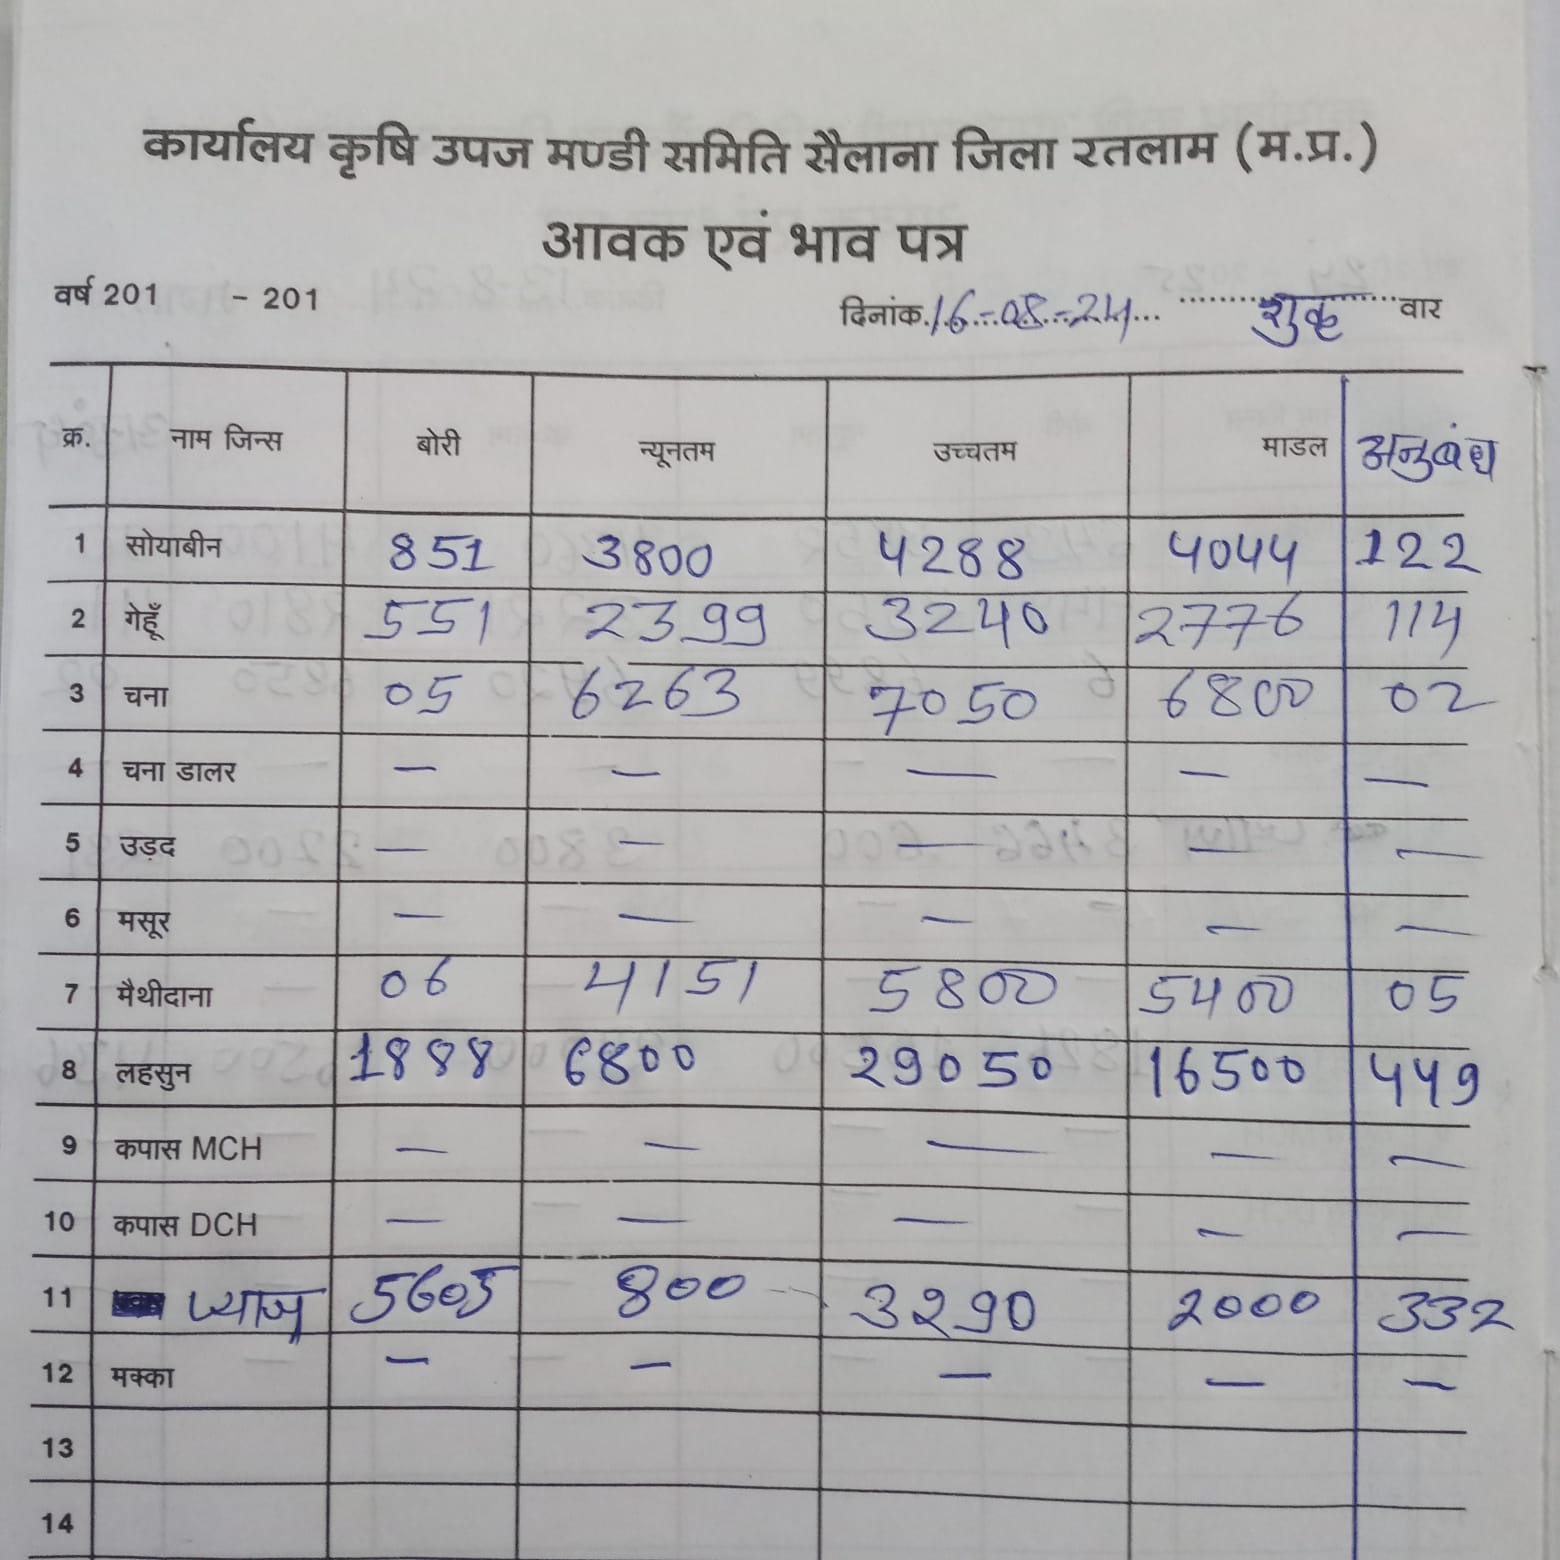 कार्यालय कृषि उपज मण्डी समिति सैलाना जिला रतलाम (म.प्र.)
आवक एवं भाव पत्र
वर्ष 201 - 201 दिनांक. 16-08-24 शुक्र वार
क्र. नाम जिन्स बोरी न्यूनतम उच्चतम माडल अनुबंध
1 सोयाबीन 851 3800 4288 4044 122
2 गेहूँ 551 2399 3240 2776 114
3 चना 05 6263 7050 6800 02
4 चना डालर — — — — —
5 उड़द — — — — —
6 मसूर — — — — —
7 मैथीदाना 06 4151 5800 5400 05
8 लहसुन 1888 6800 29050 16500 449
9 कपास MCH — — — — —
10 कपास DCH — — — — —
11 प्याज 5605 800 3290 2000 332
12 मक्का — — — — —
13
14